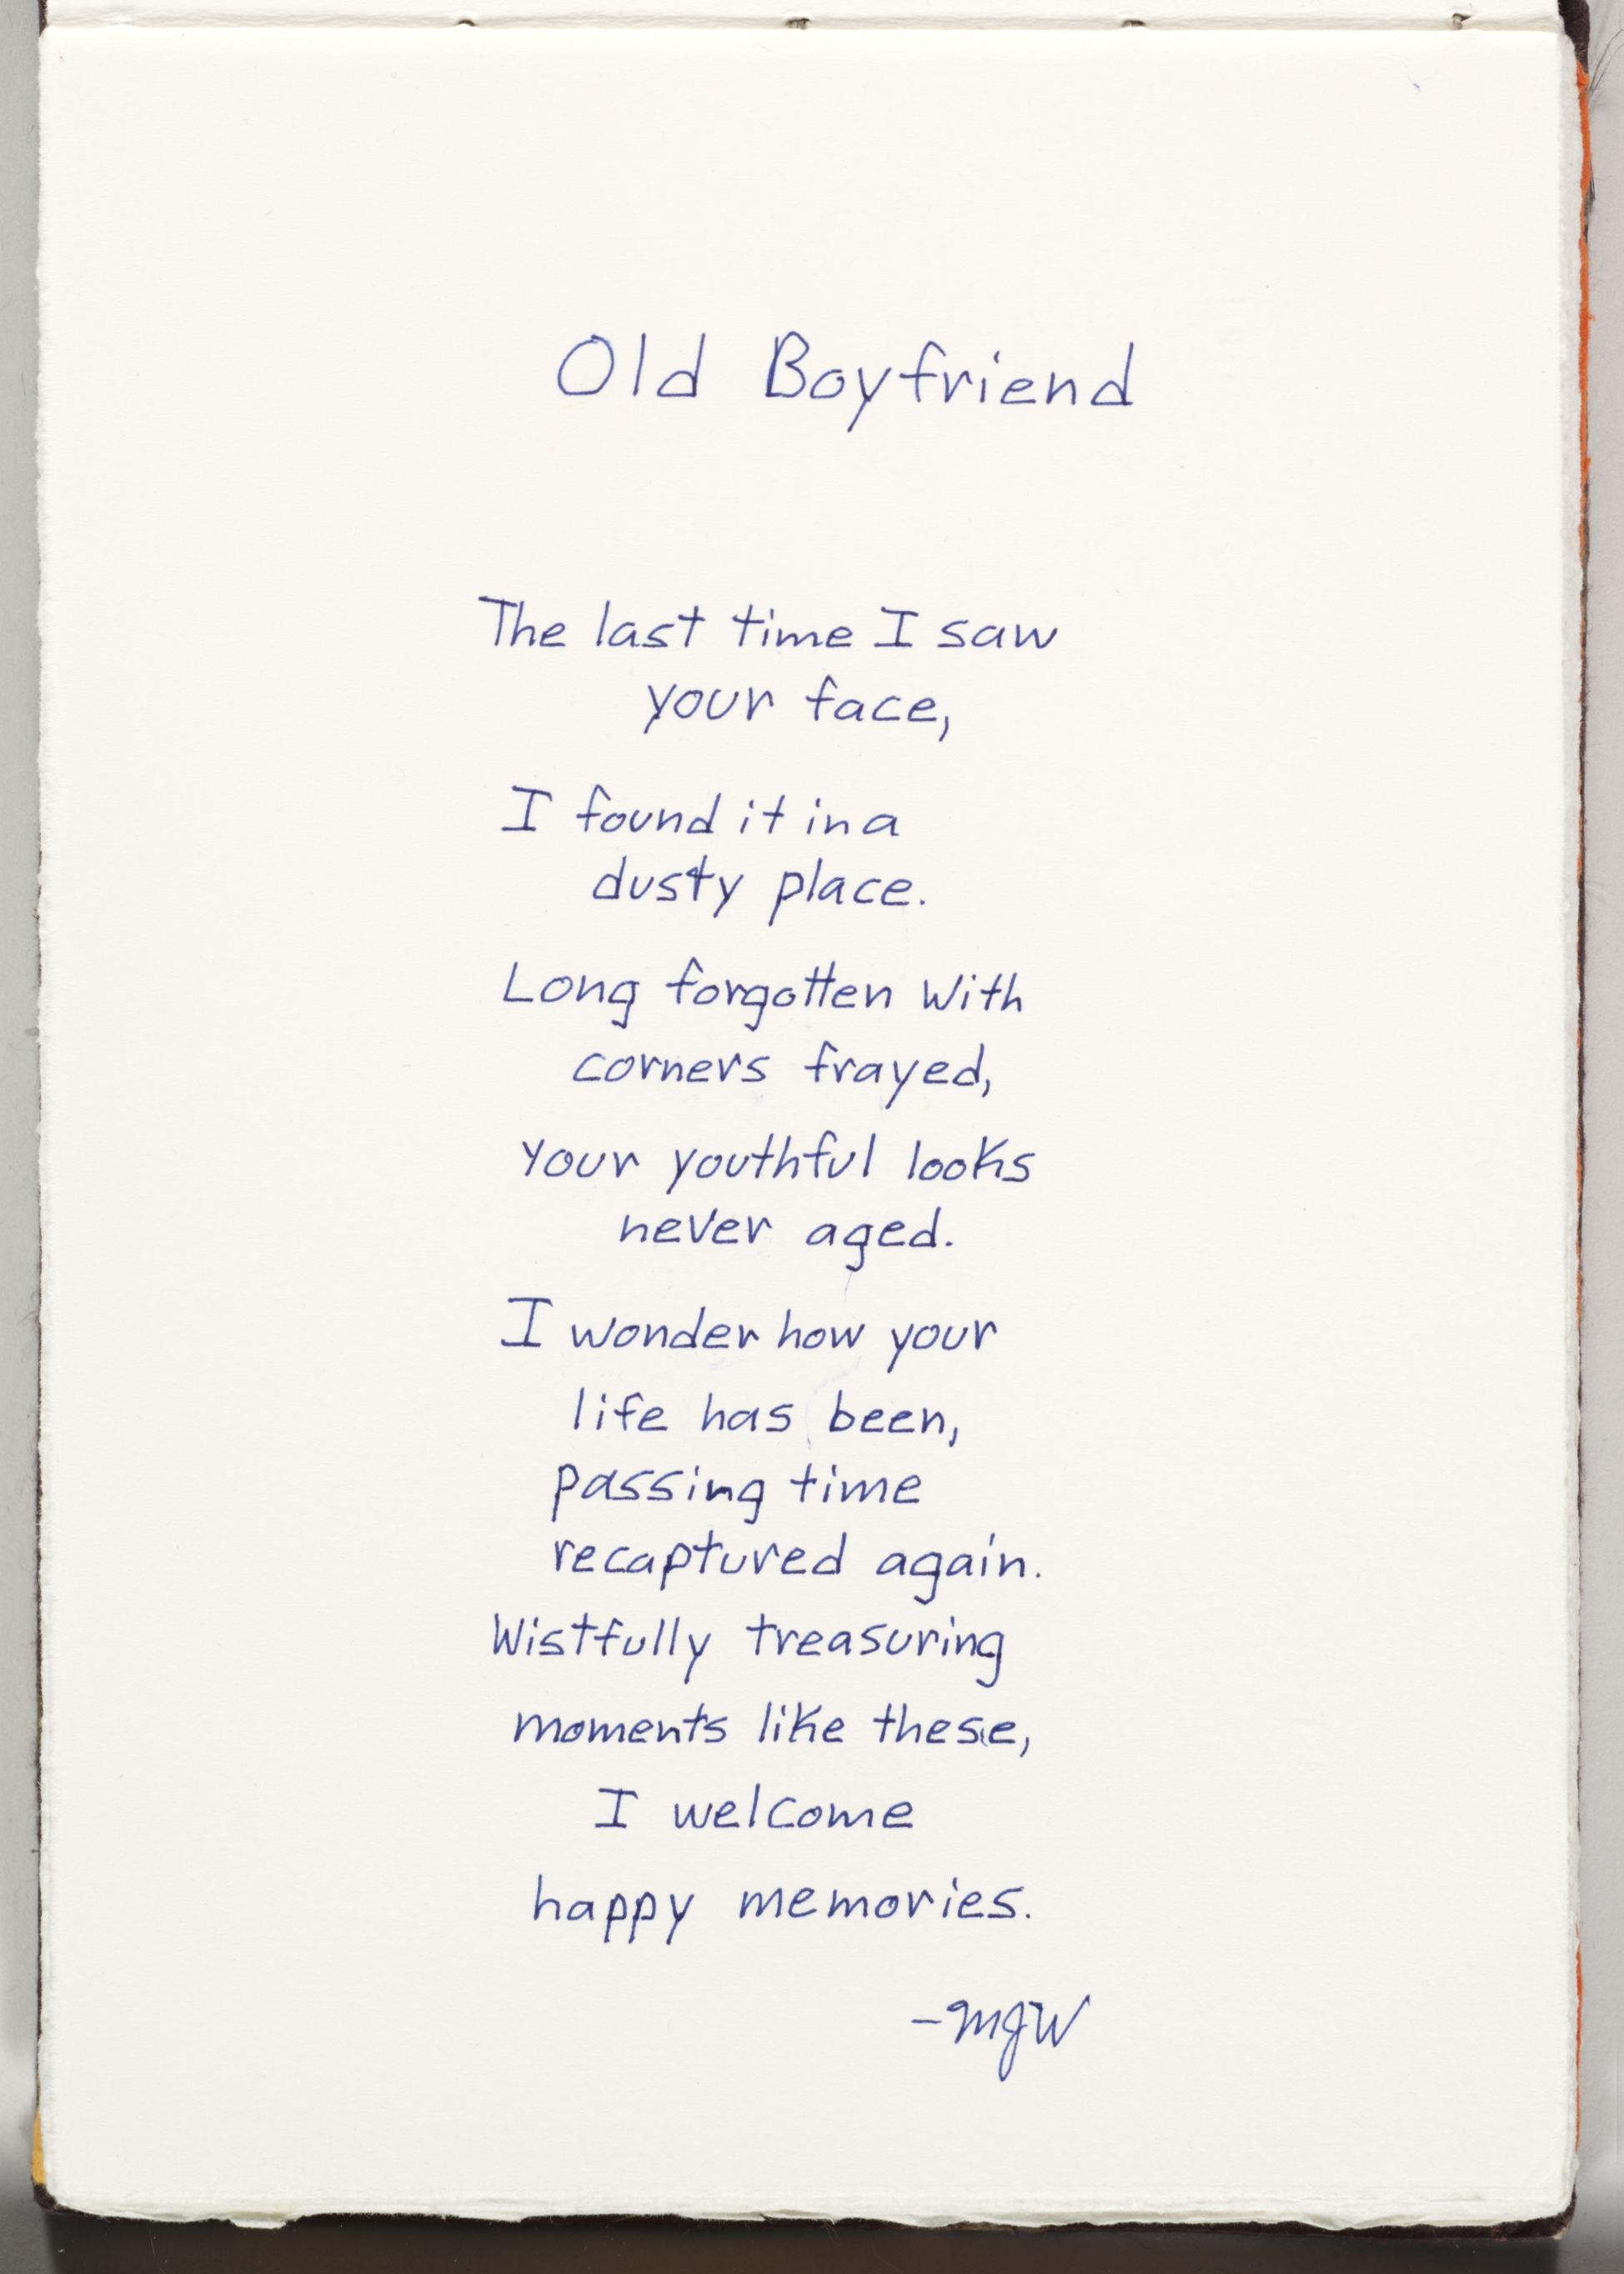 Old Boyfriend
The last time I saw
your face,
I found it in a
dusty place.
Long forgotten with
corners frayed,
Your youthful looks
never aged.
I wonder how your
life has been,
passing time
recaptured again.
Wistfully treasuring
moments like these,
I welcome
happy memories.
-MJW